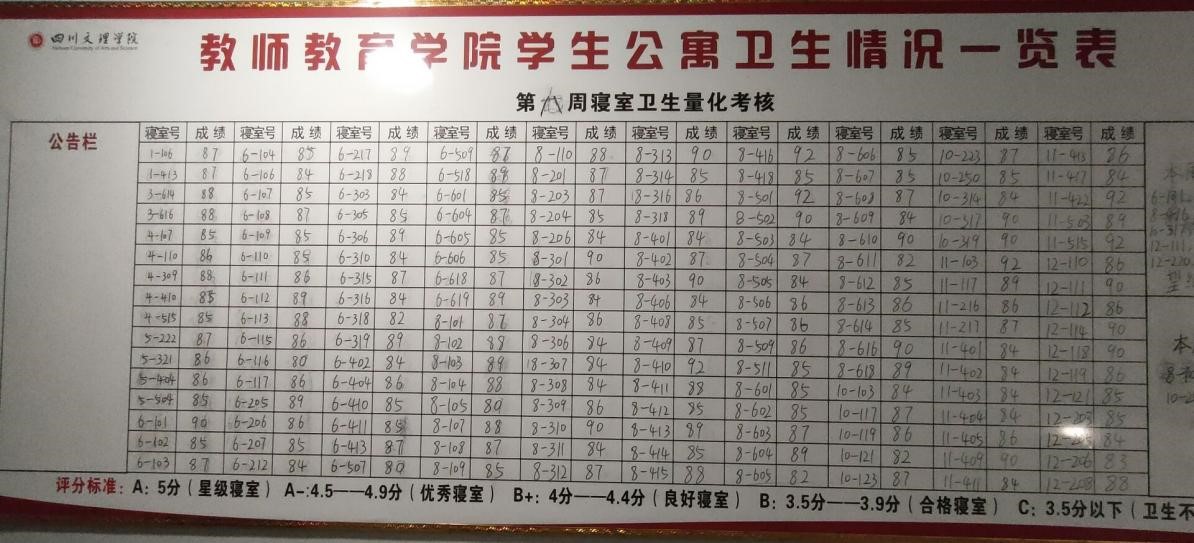 四川文理学院
Sichuan University of Arts and Science
教师教育学院学生公寓卫生情况一览表
第 周寝室卫生量化考核
公告栏 寝室号 成绩 寝室号 成绩 寝室号 成绩 寝室号 成绩 寝室号 成绩 寝室号 成绩 寝室号 成绩 寝室号 成绩 寝室号 成绩 寝室号 成绩
1-106 87 6-104 85 6-217 89 6-509 87 8-110 88 8-313 90 8-416 92 8-606 85 10-223 87 11-413 86
1-413 87 6-106 84 6-218 88 6-518 89 8-201 87 8-314 85 8-418 85 8-607 85 10-250 85 11-417 84
3-614 88 6-107 85 6-303 84 6-601 85 8-203 87 8-316 86 8-501 92 8-608 87 10-314 84 11-422 92
3-616 88 6-108 87 6-305 85 6-604 87 8-204 85 8-318 89 8-502 90 8-609 84 10-317 90 11-503 89
4-107 85 6-109 85 6-306 89 6-605 85 8-206 84 8-401 84 8-503 84 8-610 90 10-319 90 11-515 92
4-110 86 6-110 85 6-310 84 6-606 85 8-301 90 8-402 87 8-504 87 8-611 82 11-103 92 12-110 86
4-309 88 6-111 86 6-315 87 6-618 87 8-302 86 8-403 90 8-505 84 8-612 85 11-117 89 12-111 90
4-410 85 6-112 89 6-316 84 6-619 89 8-303 84 8-406 84 8-506 86 8-613 86 11-216 86 12-112 86
4-515 85 6-113 88 6-318 82 8-101 87 8-304 86 8-408 85 8-507 86 8-614 85 11-217 87 12-114 90
5-222 87 6-115 86 6-319 89 8-102 88 8-306 84 8-409 87 8-509 86 8-616 90 11-401 84 12-118 90
5-321 86 6-116 80 6-402 84 8-103 89 8-307 84 8-410 92 8-511 85 8-618 89 11-402 84 12-119 86
5-404 86 6-117 86 6-404 86 8-104 88 8-308 84 8-411 88 8-601 85 10-103 84 11-403 84 12-121 85
5-504 85 6-205 89 6-410 85 8-105 80 8-309 86 8-412 85 8-602 85 10-117 87 11-404 84 12-203 85
6-101 90 6-206 86 6-411 85 8-107 88 8-310 90 8-413 89 8-603 87 10-119 86 11-405 86 84
6-102 85 6-207 85 6-413 87 8-108 87 8-311 84 8-414 85 8-604 89 10-121 82 11-409 90 12-206 83
6-103 87 6-212 84 6-507 80 8-109 85 8-312 87 8-415 88 8-605 82 10-123 87 11-411 84 12-208 88
评分标准：A：5分（星级寝室） A-:4.5——4.9分（优秀寝室） B+: 4分——4.4分（良好寝室） B: 3.5分——3.9分（合格寝室） C: 3.5分以下（卫生不